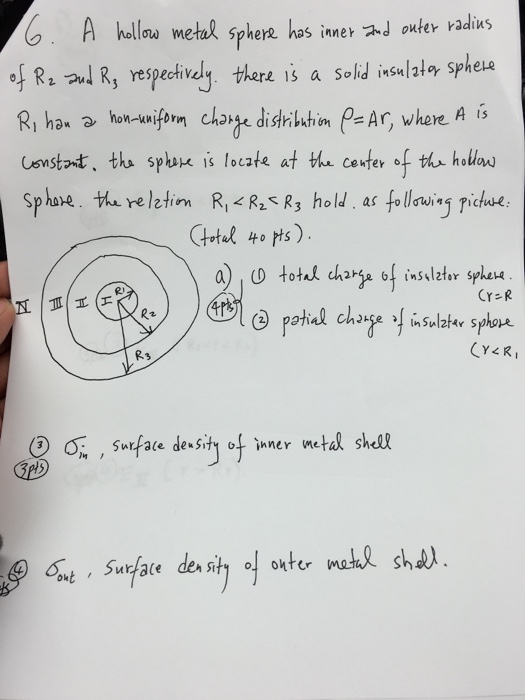 6. A hollow metal sphere has inner and outer radius
of R2 and R3 respectively. there is a solid insulator sphere
R1 han a non-uniform charge distribution ρ=Ar, where A is
constant. the sphere is locate at the center of the hollow
sphere. the relation R1<R2<R3 hold. as following picture:
(total 40 pts).
a) ① total charge of insulator sphere.
(r=R
4pts
② patial charge of insulator sphere
(r<R1
IV III II I R1
R2
R3
③ σin, surface density of inner metal shell
3pts
④ σout, surface density of outer metal shell.